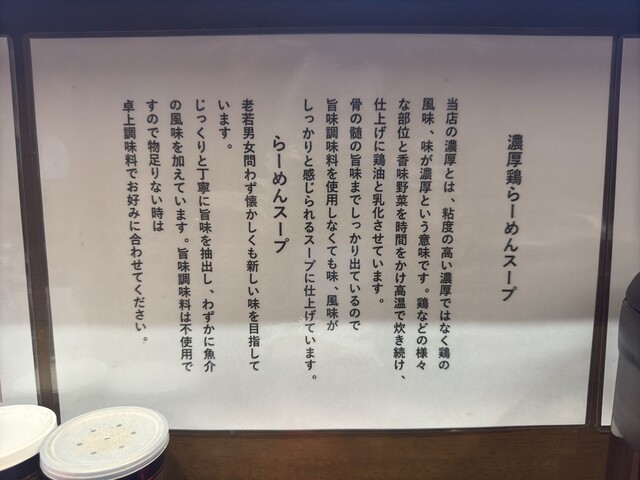 濃厚鶏らーめんスープ
当店の濃厚とは、粘度の高い濃厚ではなく鶏の
風味、味が濃厚という意味です。鶏などの様々
な部位と香味野菜を時間をかけ高温で炊き続け、
仕上げに鶏油と乳化させています。
骨の髄の旨味までしっかり出ているので
旨味調味料を使用しなくても味、風味が
しっかりと感じられるスープに仕上げています。
らーめんスープ
老若男女問わず懐かしくも新しい味を目指して
います。
じっくりと丁寧に旨味を抽出し、わずかに魚介
の風味を加えています。旨味調味料は不使用で
すので物足りない時は
卓上調味料でお好みに合わせてください。